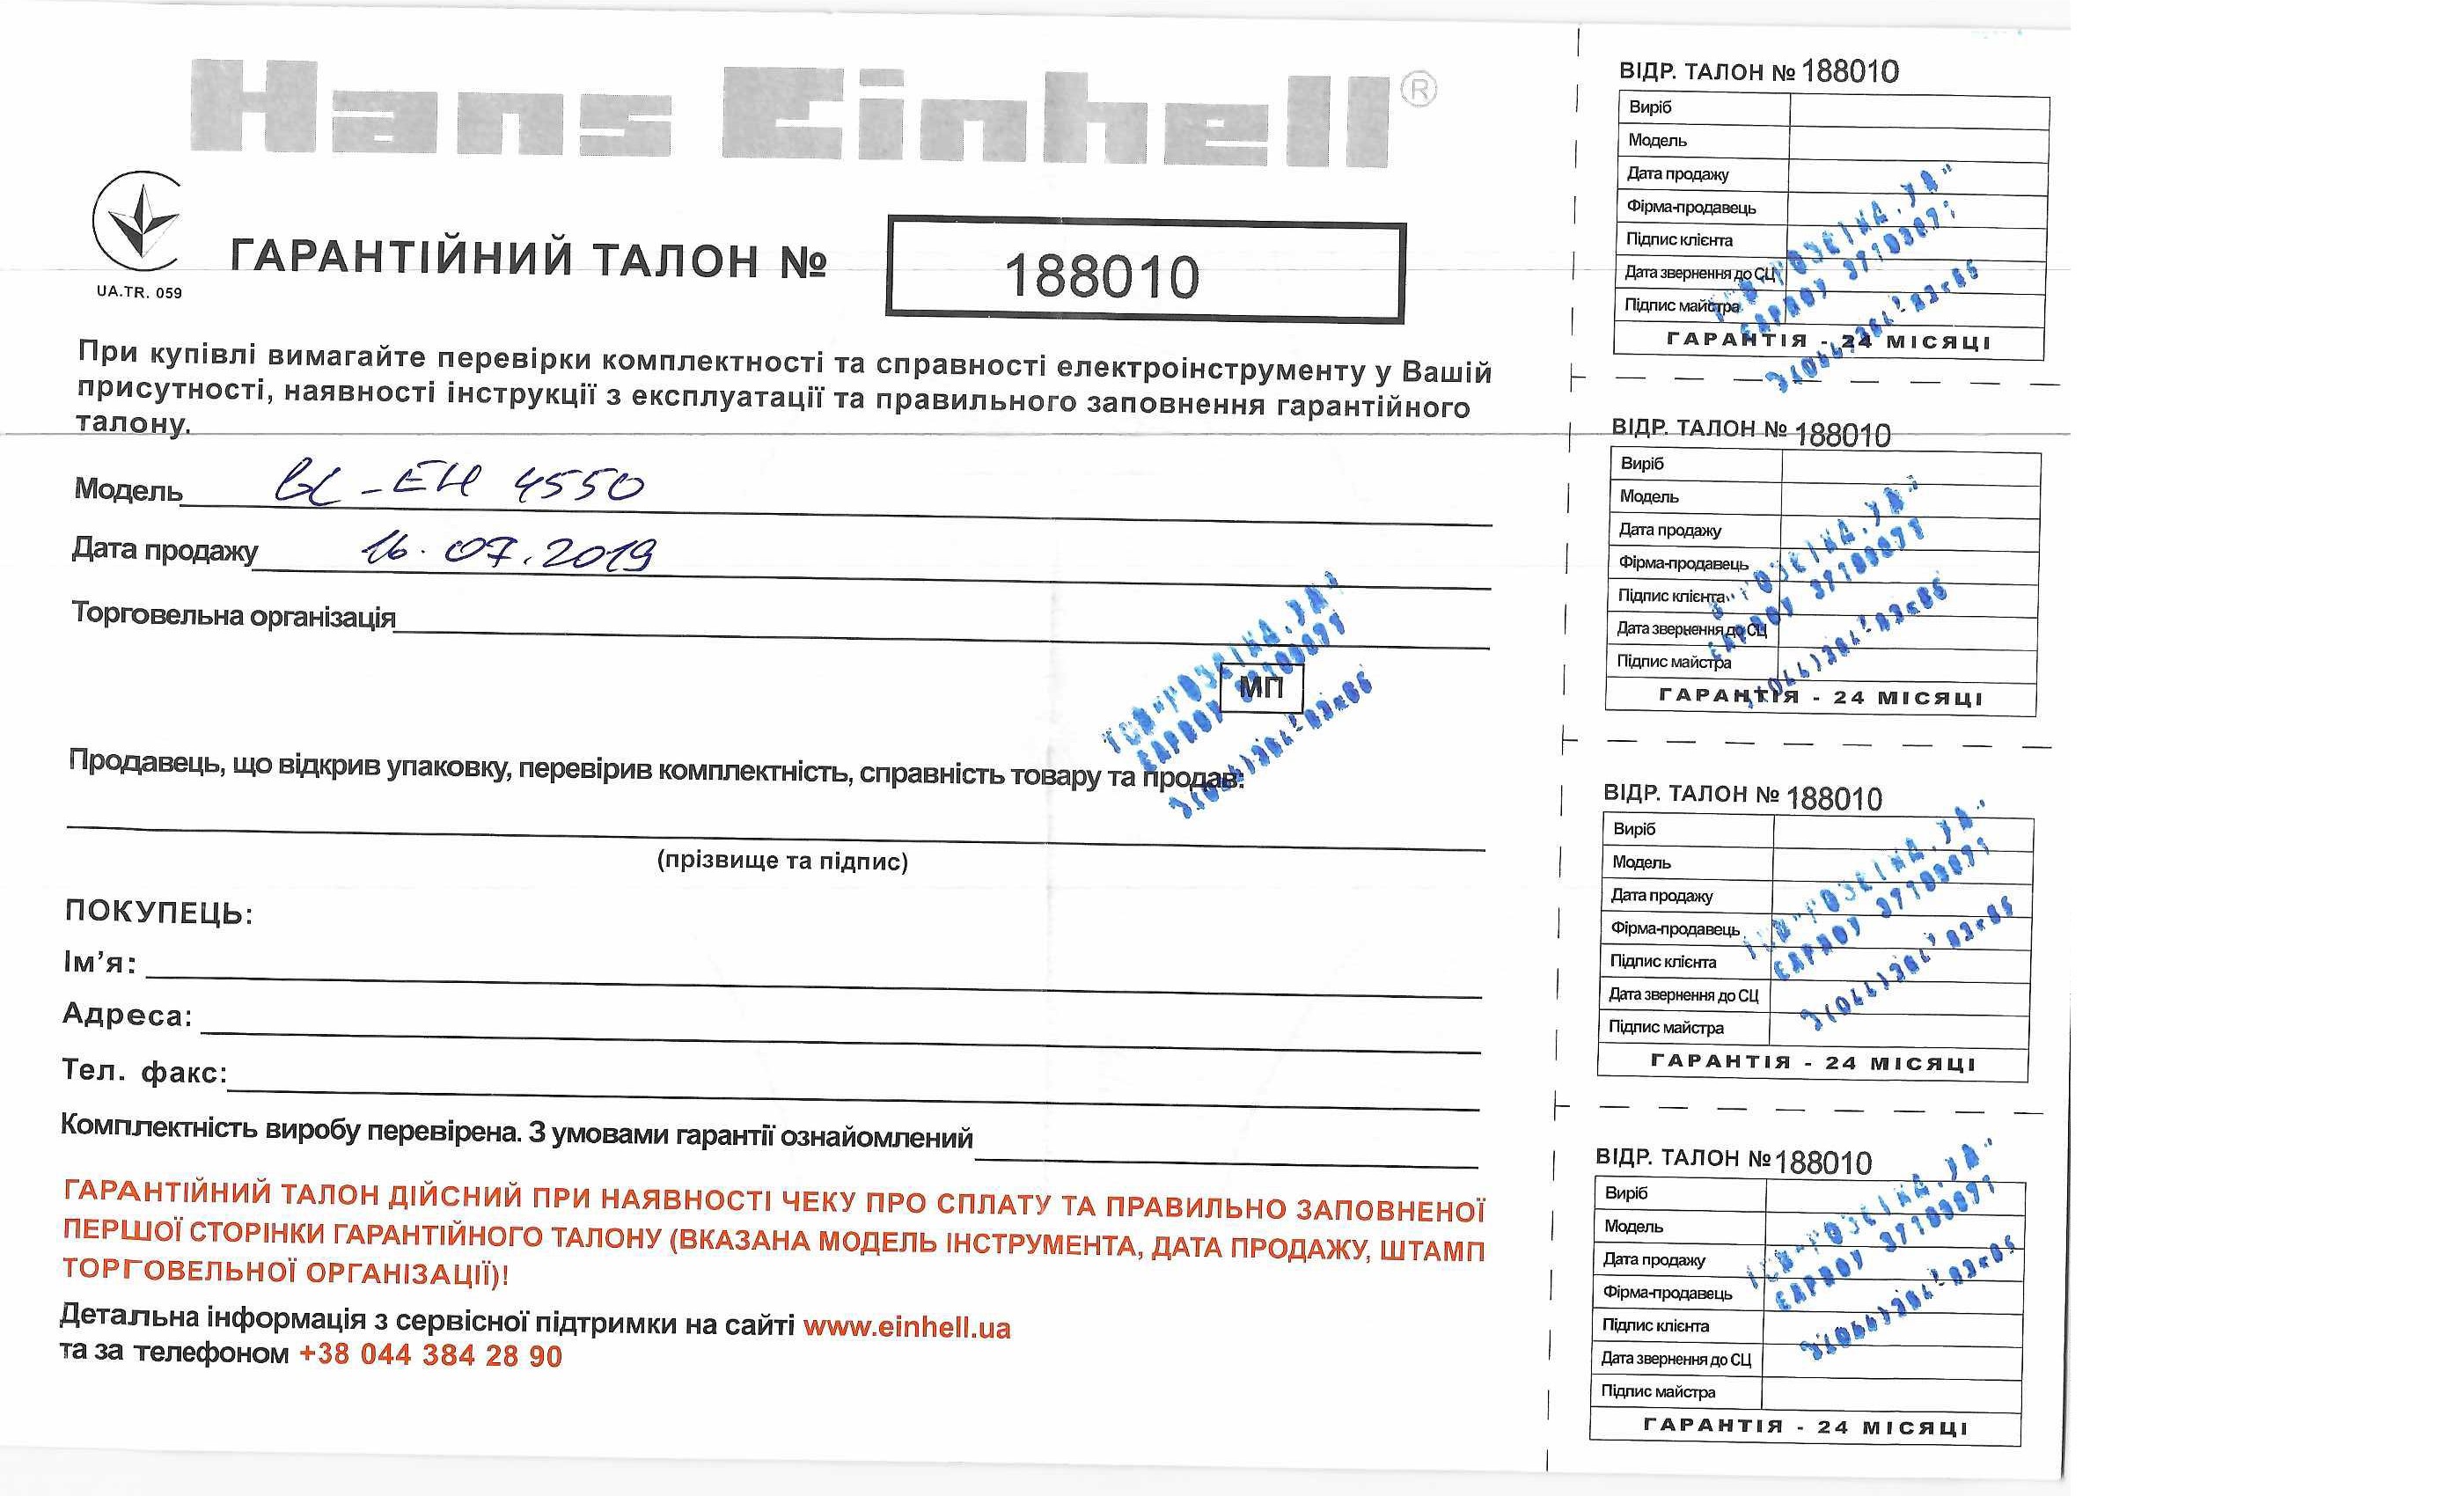 Hans Einhell®
UA.TR. 059
ГАРАНТІЙНИЙ ТАЛОН № 188010
При купівлі вимагайте перевірки комплектності та справності електроінструменту у Вашій
присутності, наявності інструкції з експлуатації та правильного заповнення гарантійного
талону.
Модель GC-EH 4550
Дата продажу 16.07.2019
Торговельна організація
МП
Продавець, що відкрив упаковку, перевірив комплектність, справність товару та продав:
(прізвище та підпис)
ПОКУПЕЦЬ:
Ім’я:
Адреса:
Тел. факс:
Комплектність виробу перевірена. З умовами гарантії ознайомлений
ГАРАНТІЙНИЙ ТАЛОН ДІЙСНИЙ ПРИ НАЯВНОСТІ ЧЕКУ ПРО СПЛАТУ ТА ПРАВИЛЬНО ЗАПОВНЕНОЇ
ПЕРШОЇ СТОРІНКИ ГАРАНТІЙНОГО ТАЛОНУ (ВКАЗАНА МОДЕЛЬ ІНСТРУМЕНТА, ДАТА ПРОДАЖУ, ШТАМП
ТОРГОВЕЛЬНОЇ ОРГАНІЗАЦІЇ)!
Детальна інформація з сервісної підтримки на сайті www.einhell.ua
та за телефоном +38 044 384 28 90
ВІДР. ТАЛОН № 188010
Виріб
Модель
Дата продажу
Фірма-продавець
Підпис клієнта
Дата звернення до СЦ
Підпис майстра
ГАРАНТІЯ - 24 МІСЯЦІ
ВІДР. ТАЛОН № 188010
Виріб
Модель
Дата продажу
Фірма-продавець
Підпис клієнта
Дата звернення до СЦ
Підпис майстра
ГАРАНТІЯ - 24 МІСЯЦІ
ВІДР. ТАЛОН № 188010
Виріб
Модель
Дата продажу
Фірма-продавець
Підпис клієнта
Дата звернення до СЦ
Підпис майстра
ГАРАНТІЯ - 24 МІСЯЦІ
ВІДР. ТАЛОН № 188010
Виріб
Модель
Дата продажу
Фірма-продавець
Підпис клієнта
Дата звернення до СЦ
Підпис майстра
ГАРАНТІЯ - 24 МІСЯЦІ